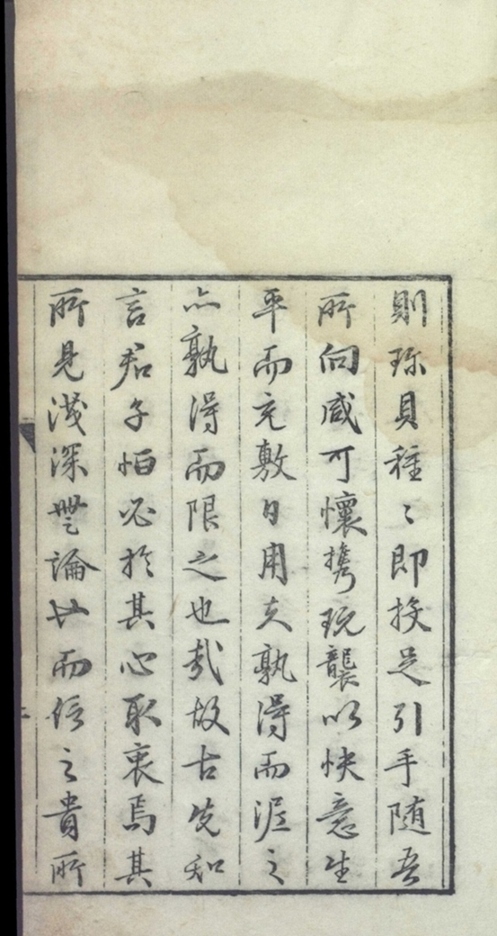 則珎貝種〻即投足引手随吾
所向咸可懷携玩襲以快意生
平而充敷日用夫孰得而涯之
亦孰得而限之也哉故古先知
言君子怕必於其心取衷焉其
所見淺深無論也而信之貴所